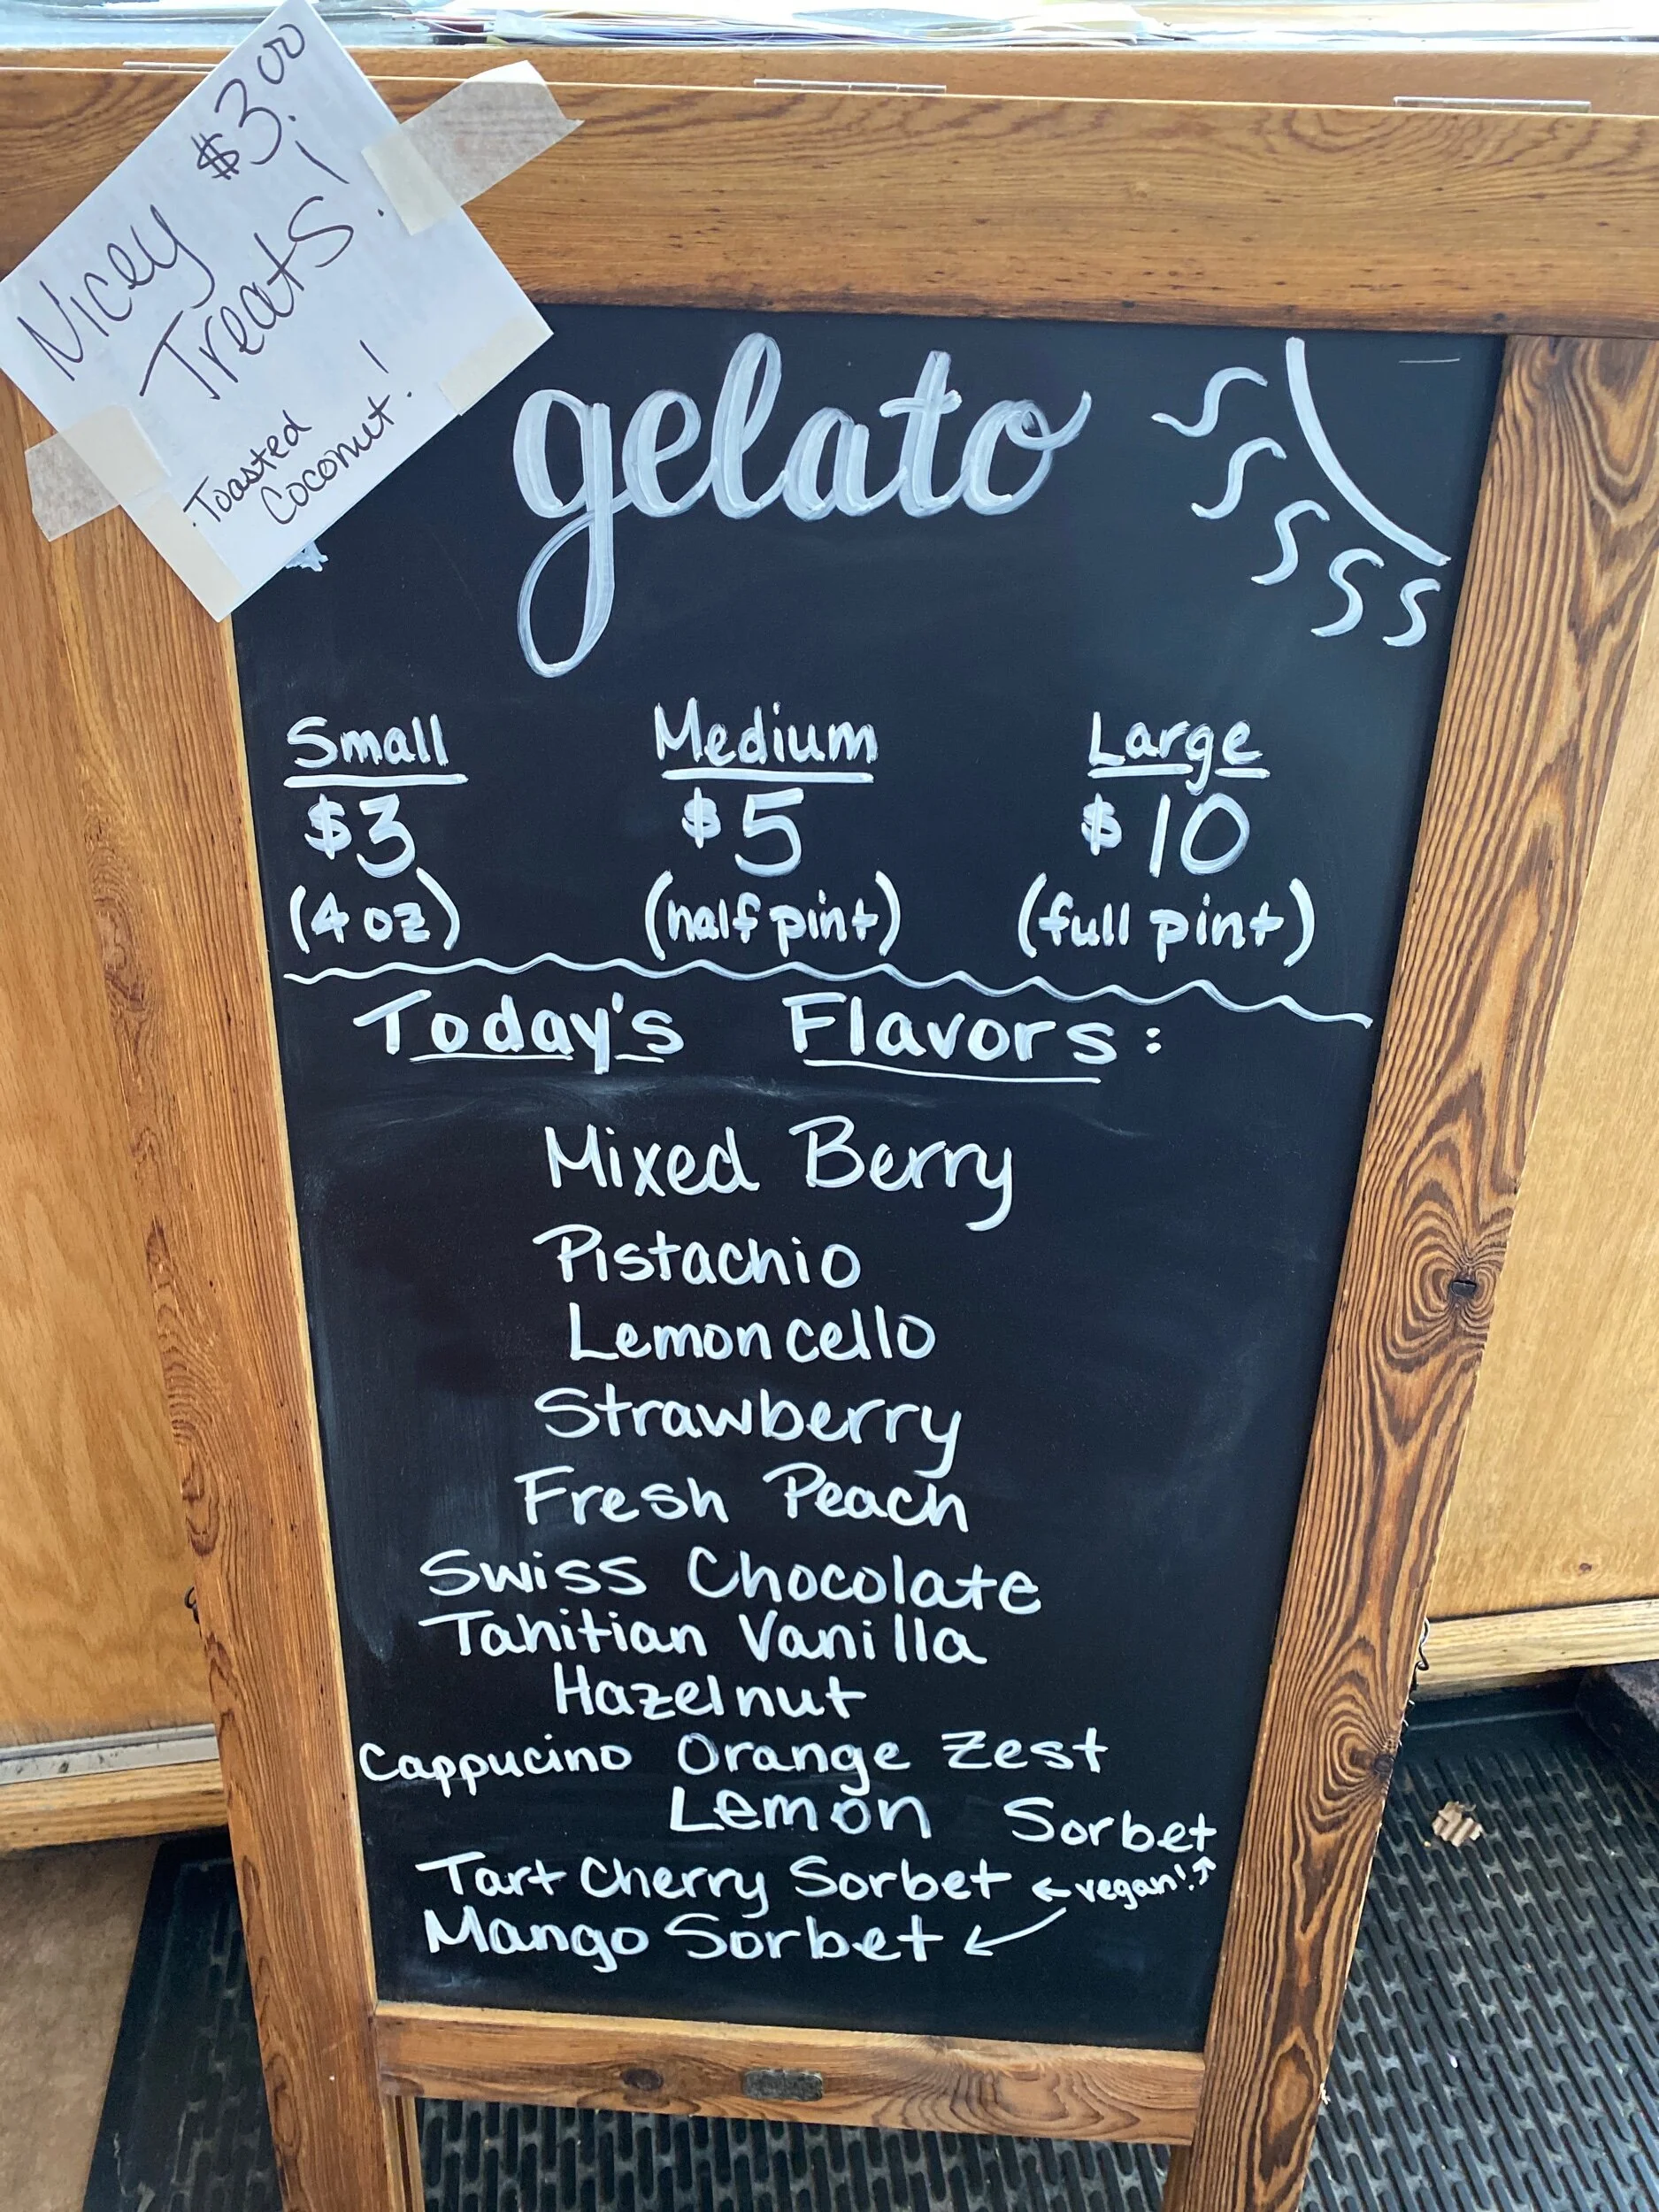 $3.00
Nicey
Treats!
Toasted
Coconut!
gelato
Small Medium Large
$3 $5 $10
(4 oz) (half pint) (full pint)
Today's Flavors:
Mixed Berry
Pistachio
Lemoncello
Strawberry
Fresh Peach
Swiss Chocolate
Tahitian Vanilla
Hazelnut
Cappucino Orange Zest
Lemon Sorbet
Tart Cherry Sorbet ←vegan!↗
Mango Sorbet